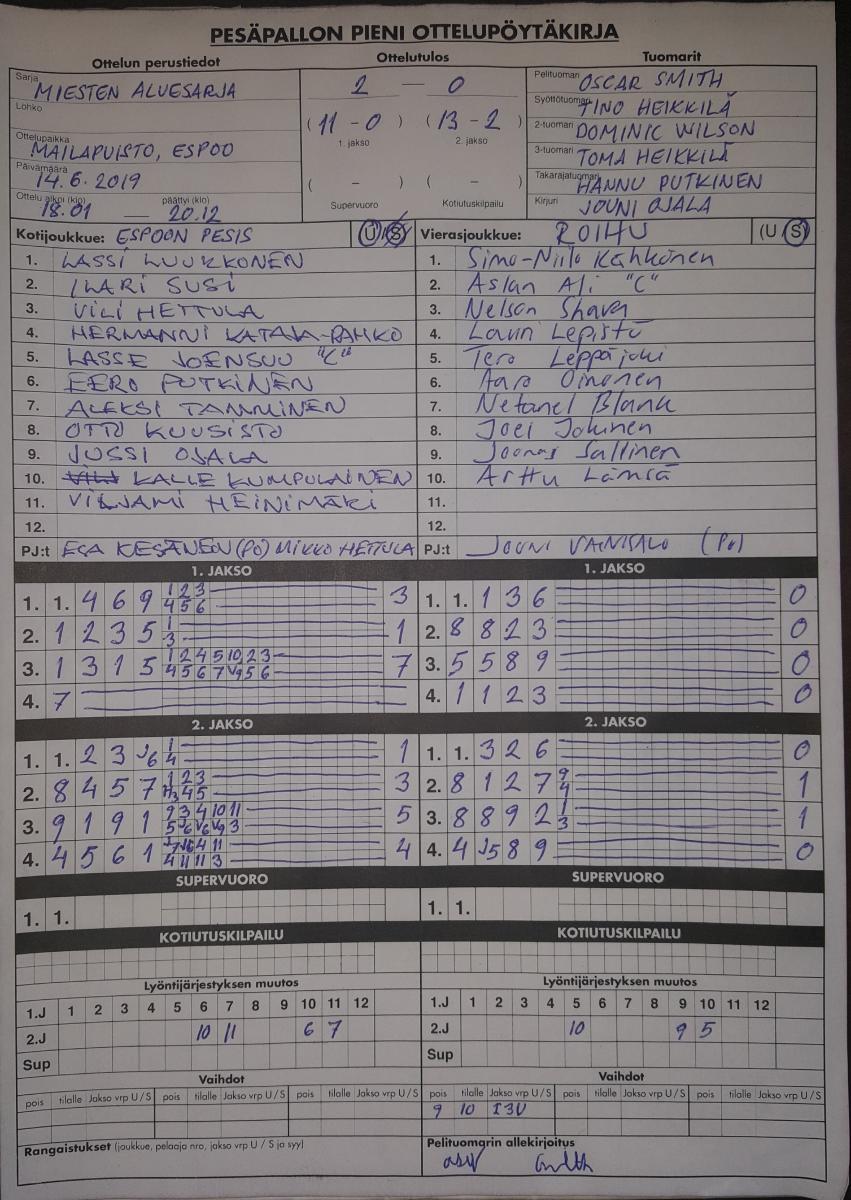 PESÄPALLON PIENI OTTELUPÖYTÄKIRJA
Ottelun perustiedot
Sarja MIESTEN ALUESARJA
Lohko
Ottelupaikka MAILAPUISTO, ESPOO
Päivämäärä 14.6.2019
Ottelu alkoi (klo) 18.01 — päättyi (klo) 20.12
Ottelutulos
2 — 0
(11 - 0) (13 - 2)
1. jakso 2. jakso
( - ) ( - )
Supervuoro Kotiutuskilpailu
Tuomarit
Pelituomari OSCAR SMITH
Syöttötuomari TINO HEIKKILÄ
2-tuomari DOMINIC WILSON
3-tuomari TOMA HEIKKILÄ
Takarajatuomari HANNU PUTKINEN
Kirjuri JOUNI OJALA
Kotijoukkue: ESPOON PESIS (U/S)
1. LASSI LUUKKONEN
2. ILARI SUSI
3. VILI HETTULA
4. HERMANNI KATAJA-RAHKO
5. LASSE JOENSUU "C"
6. EERO PUTKINEN
7. ALEKSI TAMMINEN
8. OTTO KUUSISTO
9. JUSSI OJALA
10. KALLE KUMPULAINEN
11. VILJAMI HEINIMÄKI
12.
PJ:t ESA KESÄNEN (PO) MIKKO HETTULA
Vierasjoukkue: ROIHU (U/S)
1. Simo-Niilo Kähkönen
2. Aslan Ali "C"
3. Nelson
4. Lauri Lepistö
5. Tero Leppäjoki
6. Aaro Oinonen
7. Netanel Blank
8. Joel Jokinen
9. Joonas Sallinen
10. Arttu Lämsä
11.
12.
PJ:t JOUNI VAINISALO
1. JAKSO
1. 1. 4 6 9 1 2 3 3
4 5 6
2. 1 2 3 5 1 1
3
3. 1 3 1 5 1 2 4 5 10 2 3 7
4 5 6 7 V9 5 6
4. 7
1. JAKSO
1. 1. 1 3 6 0
2. 8 8 2 3 0
3. 5 5 8 9 0
4. 1 1 2 3 0
2. JAKSO
1. 1. 2 3 J6 1 1
4
2. 8 4 5 7 1 2 3 3
4 5
3. 9 1 9 1 9 3 4 10 11 5
4. 4 5 6 1 4
4 11 11 3
2. JAKSO
1. 1. 3 2 6 0
2. 8 1 2 7 9 1
4
3. 8 8 9 2 1 1
3
4. 4 J5 8 9 0
SUPERVUORO
1. 1.
SUPERVUORO
1. 1.
KOTIUTUSKILPAILU
KOTIUTUSKILPAILU
Lyöntijärjestyksen muutos
1.J 1 2 3 4 5 6 7 8 9 10 11 12
2.J 10 11 6 7
Sup
Lyöntijärjestyksen muutos
1.J 1 2 3 4 5 6 7 8 9 10 11 12
2.J 10 9 5
Sup
Vaihdot
pois tilalle Jakso vrp U / S pois tilalle Jakso vrp U / S pois tilalle Jakso vrp U / S
Vaihdot
pois tilalle Jakso vrp U / S pois tilalle Jakso vrp U / S pois tilalle Jakso vrp U / S
9 10 I3U
Rangaistukset (joukkue, pelaaja nro, jakso vrp U / S ja syy)
Pelituomarin allekirjoitus